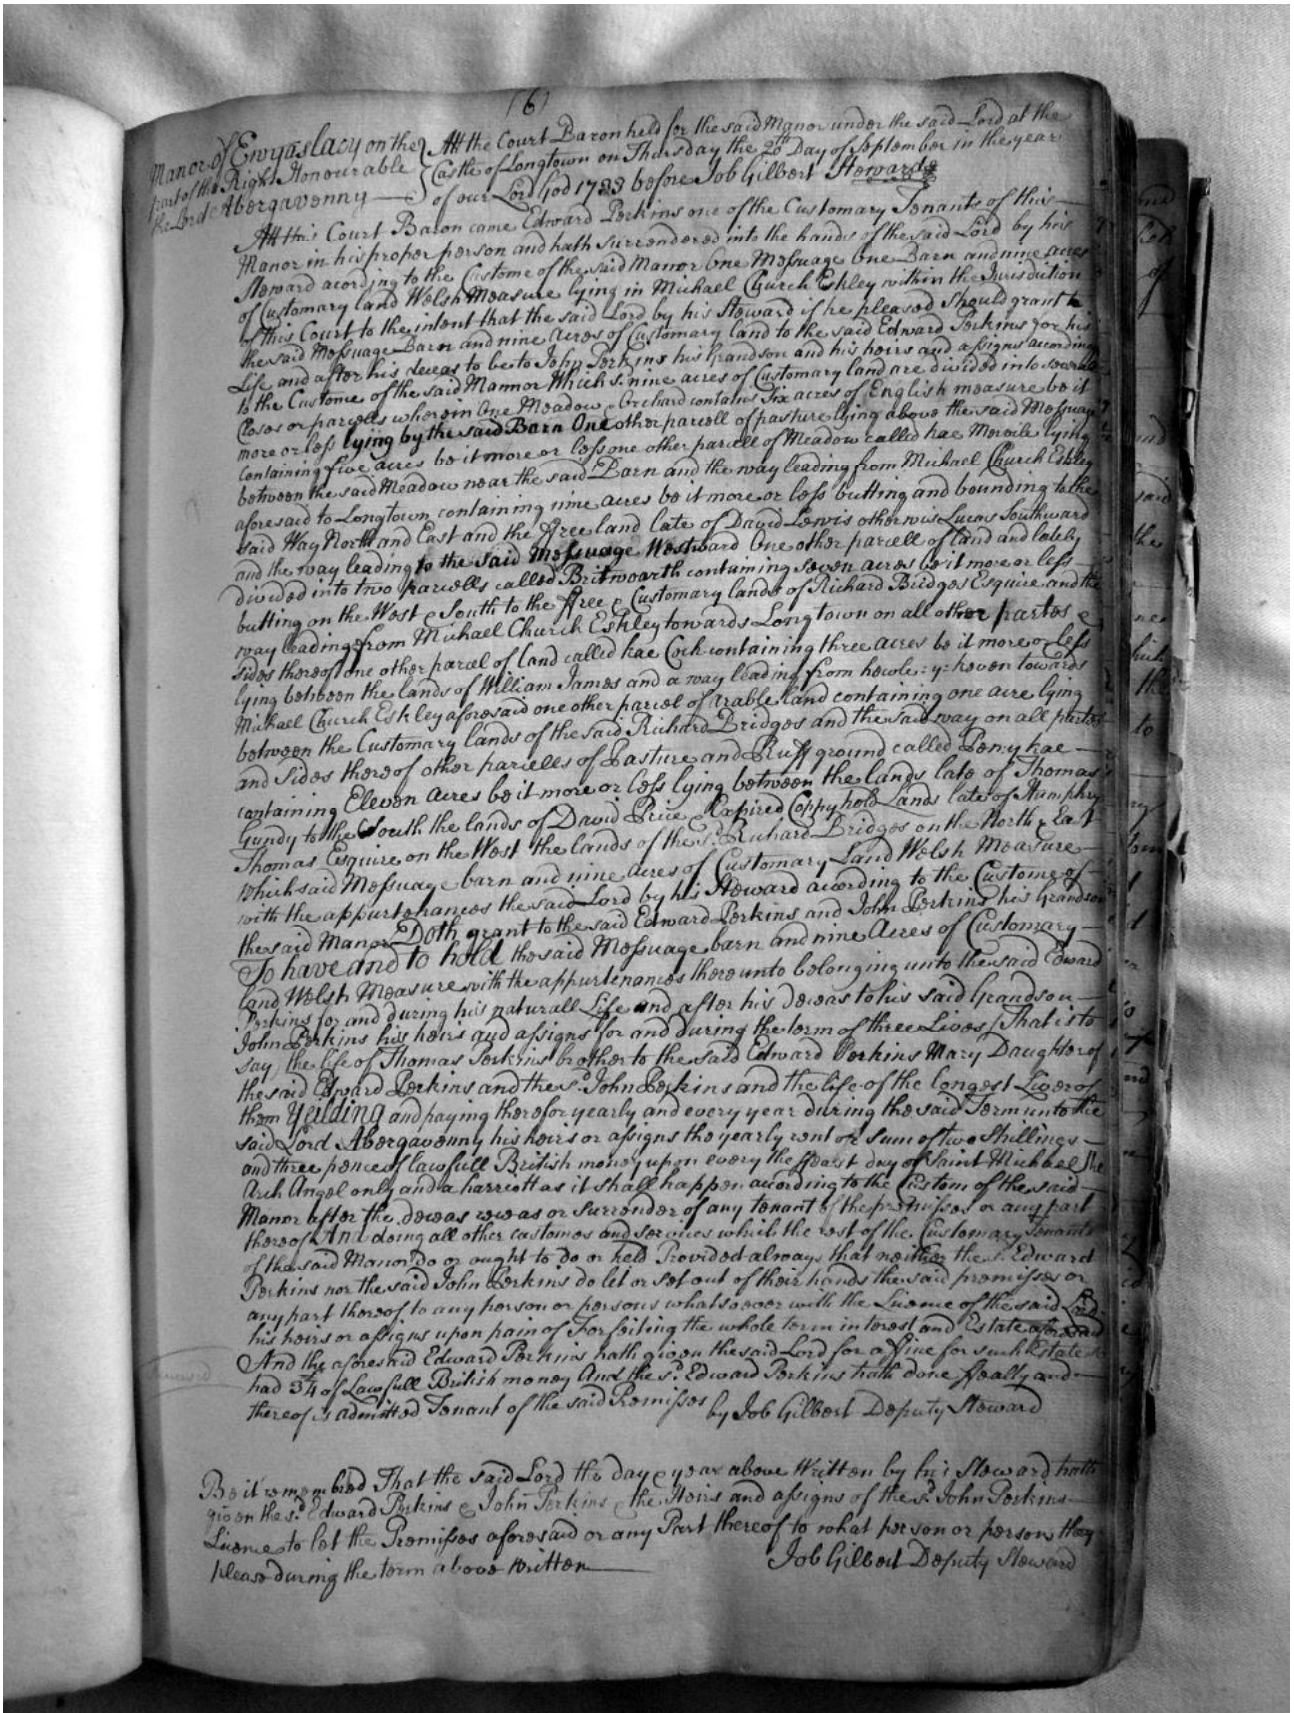 (6)
Manor of Ewyaslacy on the
part of the Right Honourable
the Lord Abergavenny
Att the Court Baron held for the said Manor under the said Lord at the
Castle of Longtown on Thursday the 20th Day of September in the year
of our Lord God 1733 before Job Gilbert Steward
Att this Court Baron came Edward Perkins one of the Customary Tenants of this
Manor in his proper person and hath surrendered into the hands of the said Lord by his
Steward acording to the Custome of the said Manor One Messuage One Barn and nine acres
of Customary land Welsh Measure lying in Michael Church Eskley within the Jurisdiction
of this Court to the intent that the said Lord by his Steward if he pleased should grant
the said Messuage Barn and nine Acres of Customary land to the said Edward Perkins for his
Life and after his deceas to be to John Perkins his Grandson and his heirs and assigns according
to the Custome of the said Mannor Which s. nine acres of Customary land are divided into severall
Closes or parcells wherein One Meadow & Orchard contains Six acres of English measure be it
more or less lying by the said Barn One other parcell of pasture lying above the said Messuage
containing five acres be it more or less one other parcell of Meadow called kae Mervile lying
between the said Meadow near the said Barn and the way leading from Michael Church Eskley
aforesaid to Longtown containing nine acres be it more or less butting and bounding to the
said Way North and East and the ffree land late of David Lewis otherwis Lucas Southward
and the way leading to the said Messuage Westward One other parcell of land and lately
divided into two parcells called Britwoarth containing seven acres be it more or less
butting on the West & South to the ffree & Customary lands of Richard Bridges Esquire and the
way leading from Michael Church Eskley towards Longtown on all other partes &
sides thereof one other parcel of land called kae Cock containing three acres be it more or less
lying between the lands of William James and a way leading from hewle=y=keven towards
Michael Church Eskley aforesaid one other parcel of arable land containing one acre lying
between the Customary lands of the said Richard Bridges and the said way on all partes
and Sides thereof other parcells of Pasture and Ruff ground called Peny kae
containing Eleven acres be it more or less lying between the lands late of Thomas
Gundy to the South the lands of David Price & Expired Coppyhold Lands late of Humphry
Thomas Esquire on the West the lands of the sd. Richard Bridges on the North & East
Which said Messuage barn and nine acres of Customary Land Welsh Measure
with the appurtenances the said Lord by his Steward acording to the Custome of
the said Manor Doth grant to the said Edward Perkins and John Perkins his Grandson
To have and to hold the said Messuage barn and nine Acres of Customary
land Welsh Measure with the appurtenances thereunto belonging unto the said Edward
Perkins for and during his naturall Life and after his deceas to his said Grandson
John Perkins his heirs and assigns for and during the term of three Lives (That is to
say) the life of Thomas Perkins brother to the said Edward Perkins Mary Daughter of
the said Edward Perkins and the sd. John Perkins and the life of the longest Liver of
them Yeilding and paying therefor yearly and every year during the said Term unto the
said Lord Abergavenny his heirs or assigns the yearly rent or sum of two Shillings
and three pence of lawfull British money upon every the ffeast day of Saint Michael the
Arch Angel only and a harriott as it shall happen acording to the Custom of the said
Manor after the deceas or surrender of any tenant of the premisses or any part
thereof And doing all other customes and services which the rest of the Customary Tenants
of the said Manor do or ought to do or held Provided always that neither the s. Edward
Perkins nor the said John Perkins do let or set out of their hands the said premisses or
any part thereof to any person or persons whatsoever with the Licence of the said Lord
his heirs or assigns upon pain of Forfeiting the whole term interest and Estate aforesaid
And the aforesaid Edward Perkins hath given the said Lord for a ffine for such Estate
had of Lawfull British money And the sd. Edward Perkins hath done ffealty and
thereof is admitted Tenant of the said Premisses by Job Gilbert Deputy Steward
Be it remembred That the said Lord the day & year above Written by his Steward hath
given the sd. Edward Perkins & John Perkins & the Heirs and assigns of the sd John Perkins
Licence to let the Premisses aforesaid or any Part thereof to what person or persons they
please during the term above written
Job Gilbert Deputy Steward